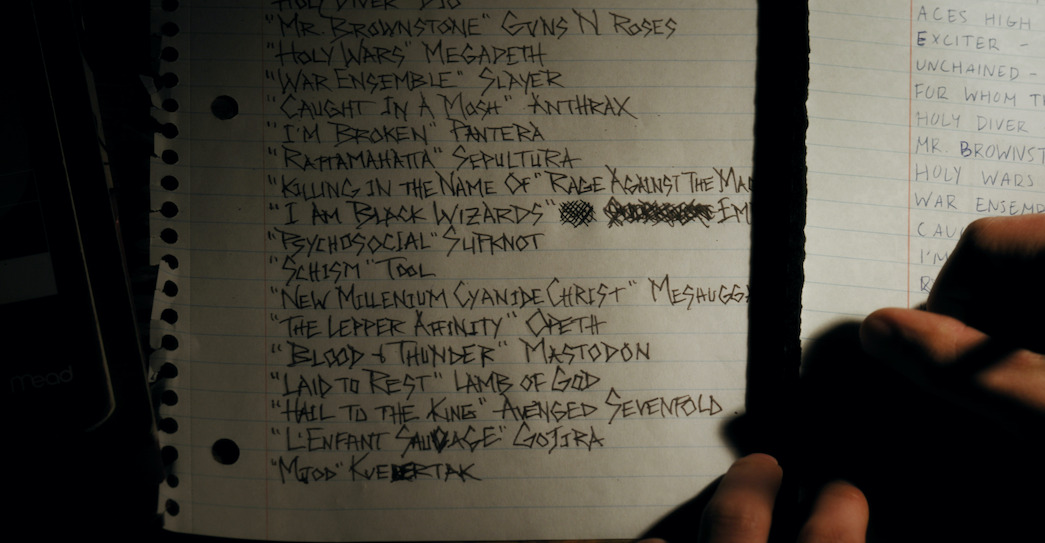 HOLY DIVER DIO
"MR. BROWNSTONE" GUNS N ROSES
"HOLY WARS" MEGADETH
"WAR ENSEMBLE" SLAYER
"CAUGHT IN A MOSH" ANTHRAX
"I'M BROKEN" PANTERA
"RATTAMAHATTA" SEPULTURA
"KILLING IN THE NAME OF" RAGE AGAINST THE MA
"I AM BLACK WIZARDS" EM
"PSYCHOSOCIAL" SLIPKNOT
"SCHISM" TOOL
"NEW MILLENIUM CYANIDE CHRIST" MESHUGG
"THE LEPPER AFFINITY" OPETH
"BLOOD + THUNDER" MASTODON
"LAID TO REST" LAMB OF GOD
"HAIL TO THE KING" AVENGED SEVENFOLD
"L'ENFANT SAUVAGE" GOJIRA
"MJOD" KVELERTAK
mead
ACES HIGH
EXCITER -
UNCHAINED -
FOR WHOM T
HOLY DIVER
MR. BROWNST
HOLY WARS
WAR ENSEMB
CAU
I'M
R